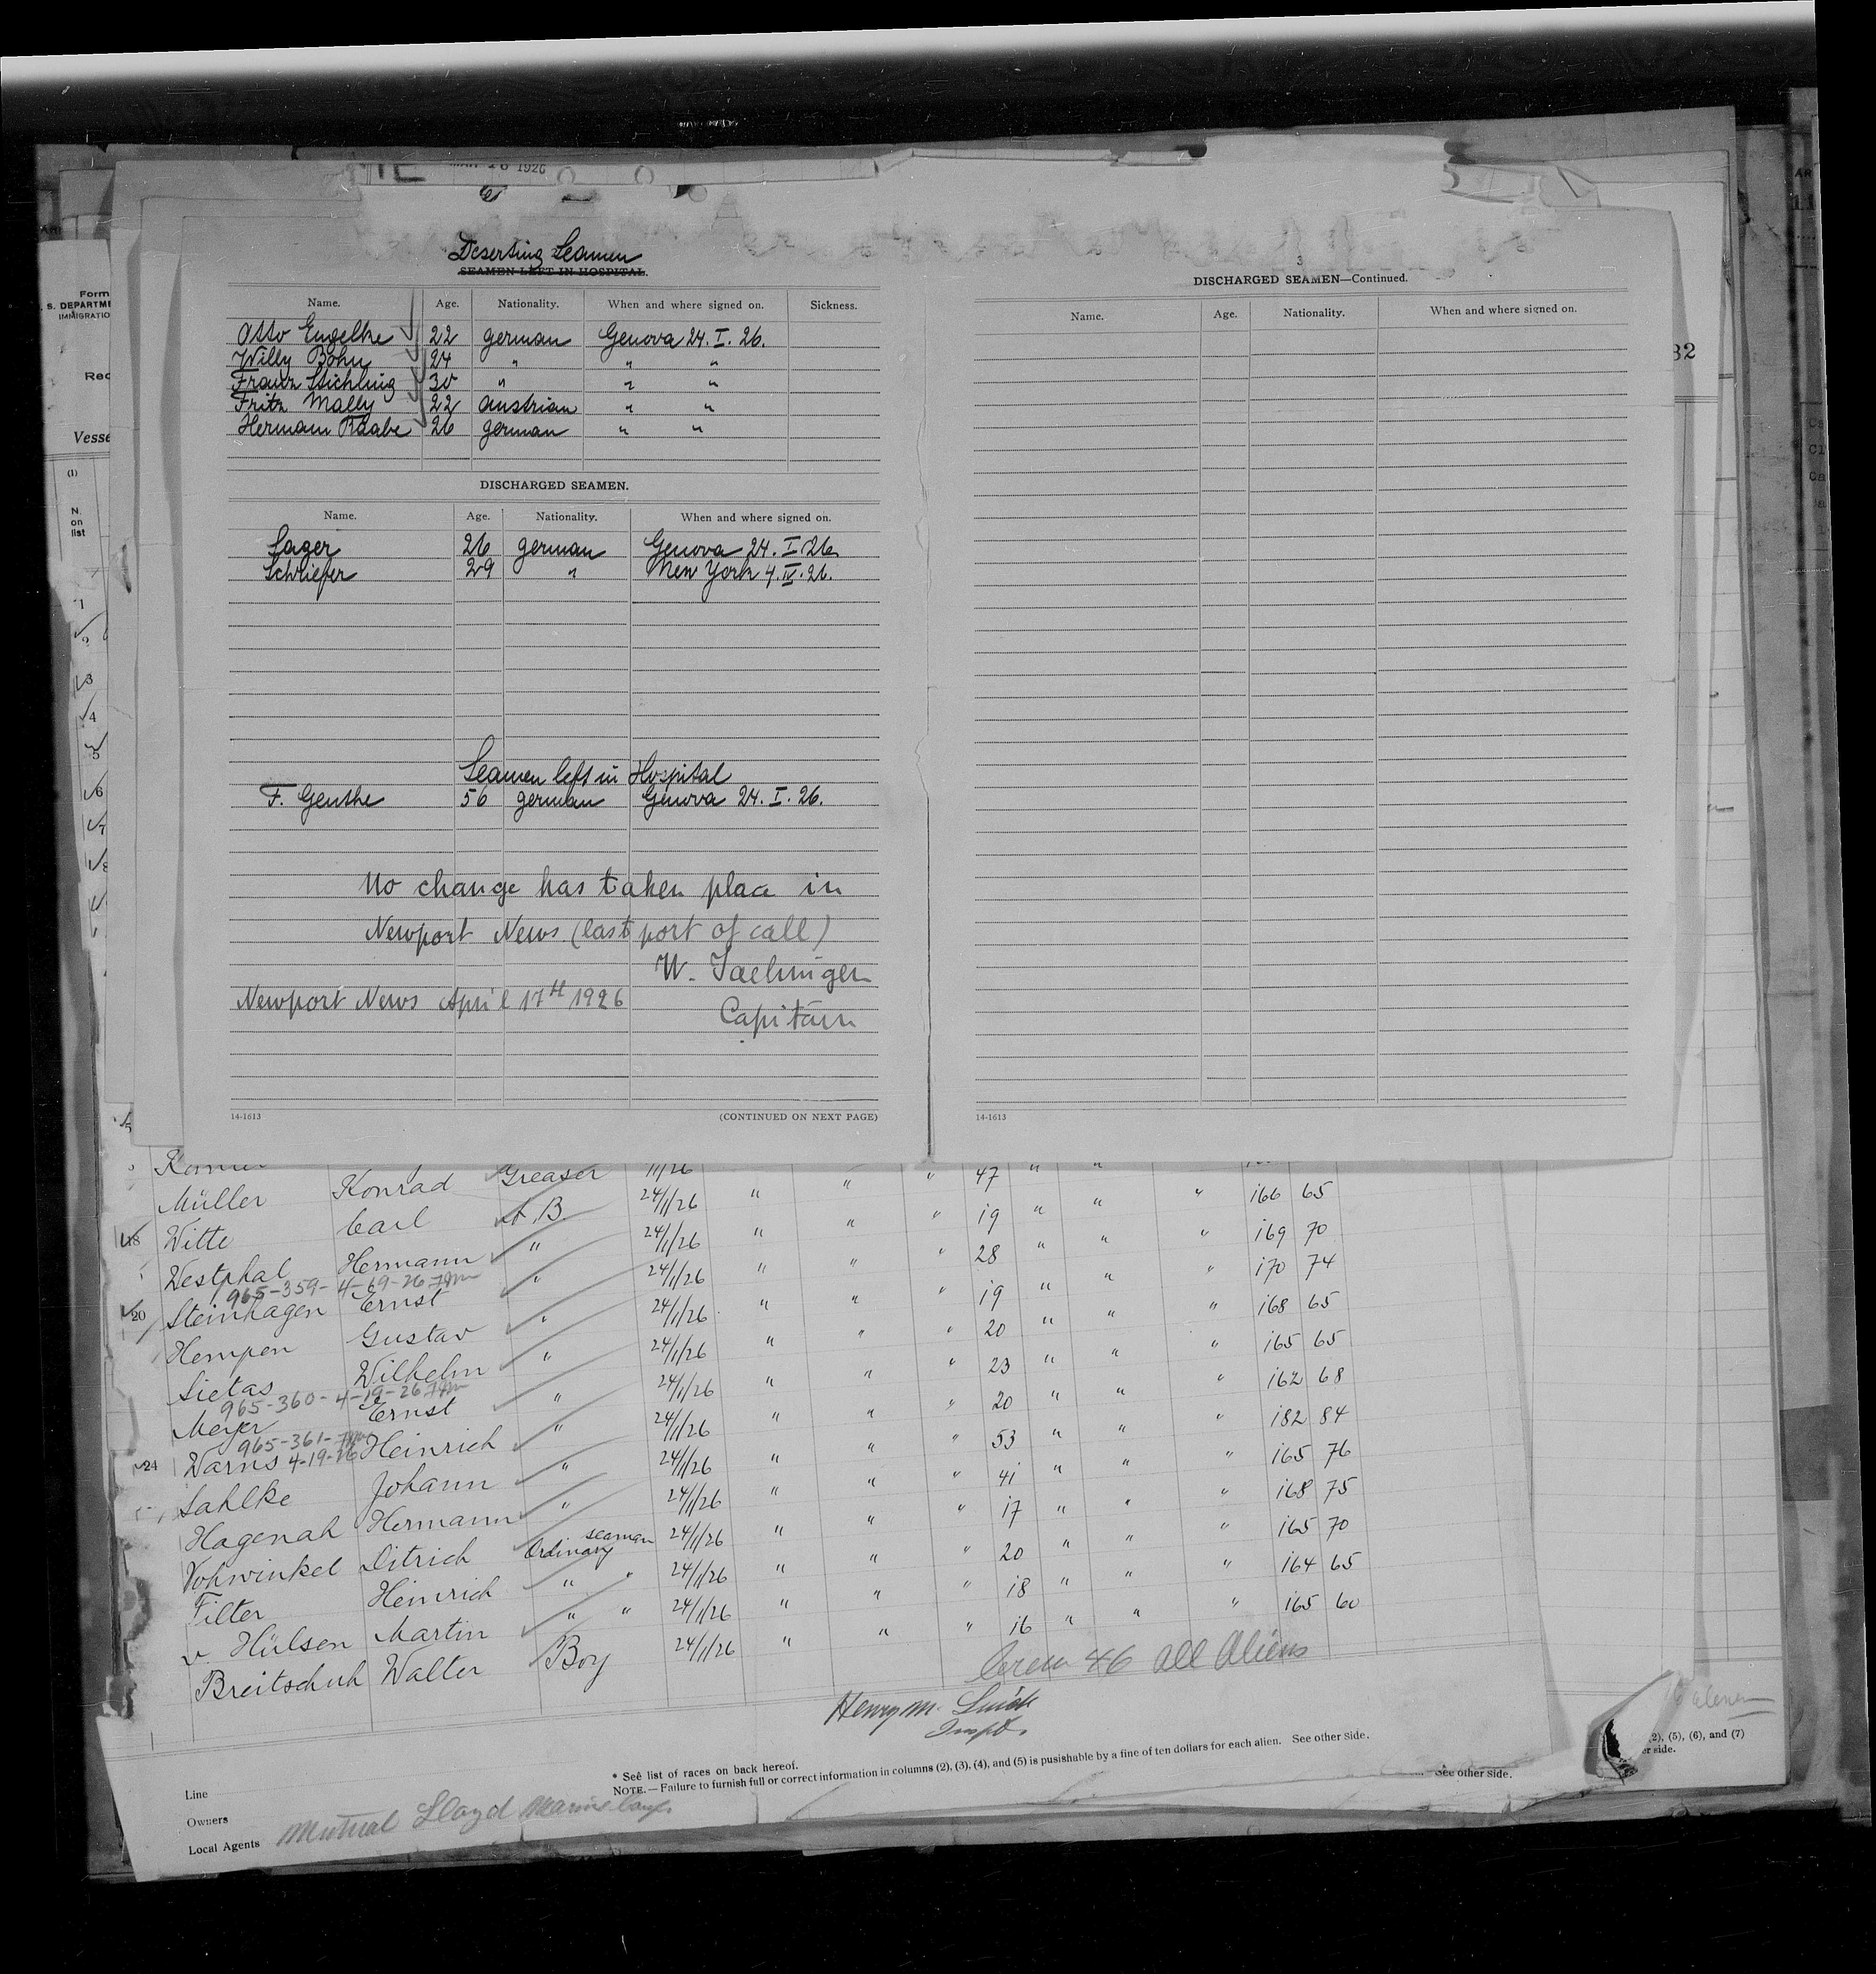 MAR 16 1926
Deserting Seamen
SEAMEN LEFT IN HOSPITAL.
Name. Age. Nationality. When and where signed on. Sickness.
Otto Engelke 22 german Genova 24. I. 26.
Willy Bohn 24 " " "
Franz Stichling 30 " " "
Fritz Mally 22 austrian " "
Hermann Raabe 26 german " "
DISCHARGED SEAMEN.
Name. Age. Nationality. When and where signed on.
Sager 26 german Genova 24. I 26.
Schliefer 29 " New York 4. IV. 26.
Seamen left in Hospital
F. Genthe 56 german Genova 24. I. 26.
No change has taken place in
Newport News (last port of call)
W.
Newport News April 17th 1926
Capitän
14-1613 (CONTINUED ON NEXT PAGE)
3
DISCHARGED SEAMEN—Continued.
Name. Age. Nationality. When and where signed on.
14-1613
32
Form
S. DEPARTME
IMMIGRATIO
Rec
Vesse
(1)
N.
on
list
1
2
3
4
5
6
7
8
Müller Konrad Greaser 24/1/26 " " " 47 " "
Witte Carl A.B 24/1/26 " " " 19 " " " 166 65
18
Westphal Hermann " 24/1/26 " " " 28 " " " 169 70
965-359-4-19-26
20 Steinhagen Ernst " 24/1/26 " " " 19 " " " 170 74
Hempen Gustav " 24/1/26 " " " 20 " " " 168 65
Sietas Wilhelm " 24/1/26 " " " 23 " " " 165 65
965-360-4-19-26
Meyer Ernst " 24/1/26 " " " 20 " " " 162 68
965-361-
24 Warns 4-19-26 Heinrich " 24/1/26 " " " 53 " " " 182 84
Sahlke Johann " 24/1/26 " " " 41 " " " 165 76
Hagenah Hermann " 24/1/26 " " " 17 " " " 168 75
Vohwinkel Ditrich Ordinary seaman 24/1/26 " " " 20 " " " 165 70
Filter Heinrich " " 24/1/26 " " " 18 " " " 164 65
v. Hülsen Martin " " 24/1/26 " " " 16 " " " 165 60
Breitschuh Walter Boy 24/1/26 "
Crew 46 all Aliens
Henry M. Smith
Inspt.
* See list of races on back hereof.
NOTE.—Failure to furnish full or correct information in columns (2), (3), (4), and (5) is pusishable by a fine of ten dollars for each alien. See other Side.
See other side.
(2), (5), (6), and (7)
er side.
Line
Owners
Local Agents Mutual Lloyd Marine